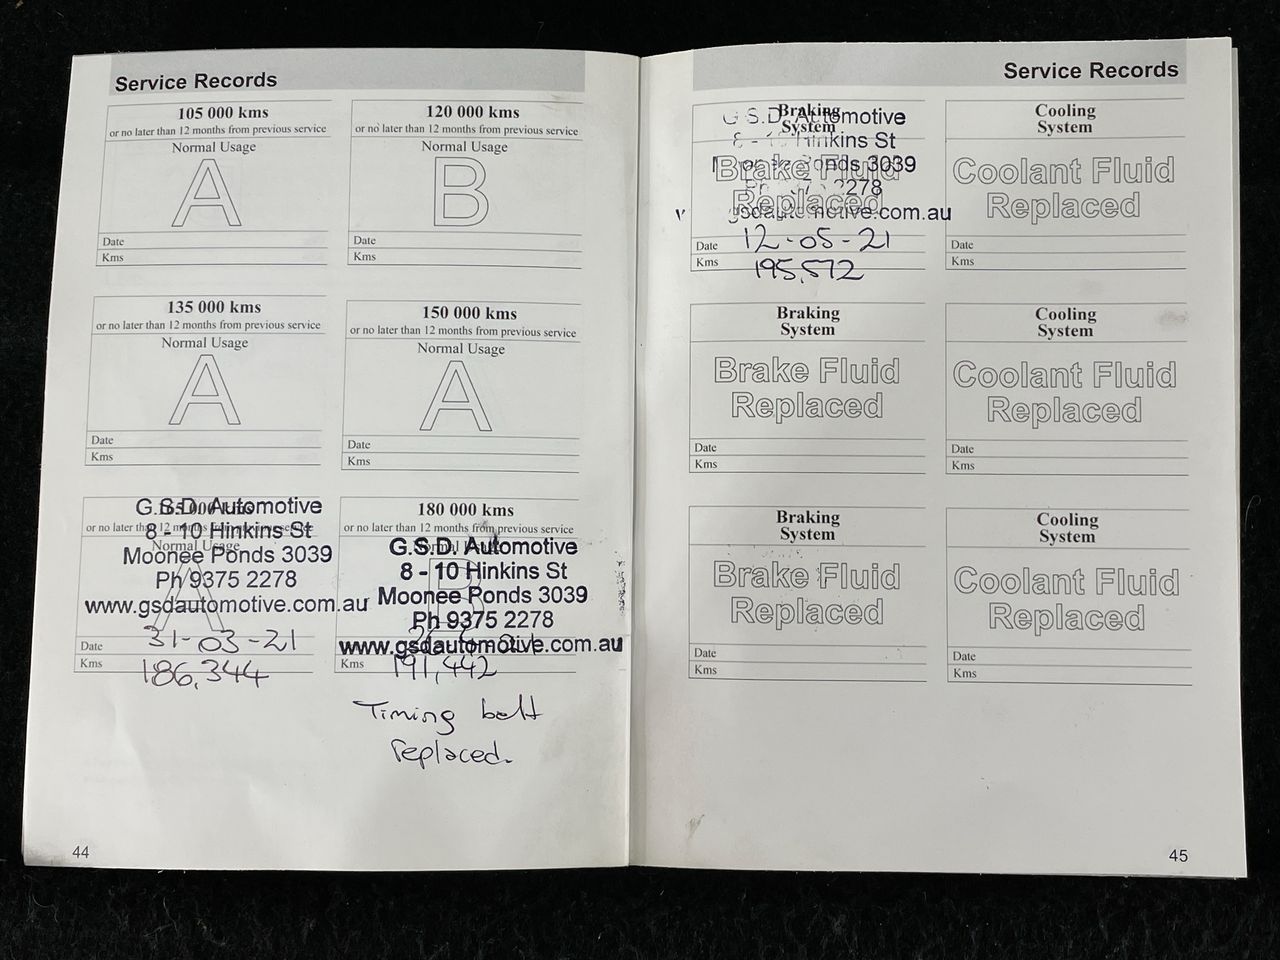 Service Records
105 000 kms
or no later than 12 months from previous service
Normal Usage
A
Date
Kms
120 000 kms
or no later than 12 months from previous service
Normal Usage
B
Date
Kms
135 000 kms
or no later than 12 months from previous service
Normal Usage
A
Date
Kms
150 000 kms
or no later than 12 months from previous service
Normal Usage
A
Date
Kms
165 000 kms
or no later than 12 months from previous service
Normal Usage
A
G.S.D. Automotive
8 - 10 Hinkins St
Moonee Ponds 3039
Ph 9375 2278
www.gsdautomotive.com.au
Date 31-03-21
Kms 186,344
180 000 kms
or no later than 12 months from previous service
Normal Usage
G.S.D. Automotive
8 - 10 Hinkins St
Moonee Ponds 3039
Ph 9375 2278
www.gsdautomotive.com.au
Kms 191,442
Timing belt
replaced.
44
Service Records
Braking
System
Brake Fluid
Replaced
G.S.D. Automotive
8 - 10 Hinkins St
Moonee Ponds 3039
2278
gsdautomotive.com.au
Date 12-05-21
Kms 195,572
Cooling
System
Coolant Fluid
Replaced
Date
Kms
Braking
System
Brake Fluid
Replaced
Date
Kms
Cooling
System
Coolant Fluid
Replaced
Date
Kms
Braking
System
Brake Fluid
Replaced
Date
Kms
Cooling
System
Coolant Fluid
Replaced
Date
Kms
45